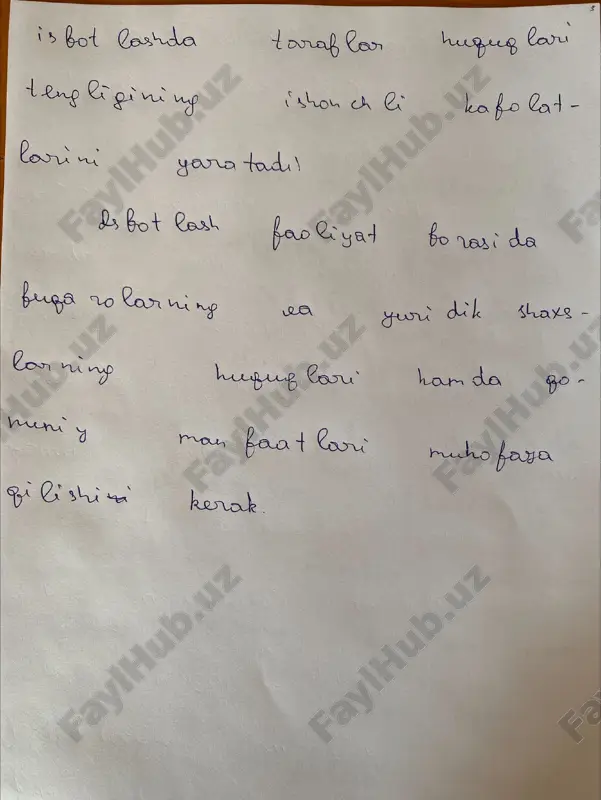 isbotlashda taraflar huquqlari
tengligining ishonchli kafolat-
larini yaratadi
Isbotlash faoliyat borasida
fuqarolarning va yuridik shaxs-
larning huquqlari hamda qo-
nuniy manfaatlari muhofaza
qilishini kerak.
FaylHub.uz
FaylHub.uz
FaylHub.uz
FaylHub.uz
FaylHub.uz
FaylHub.uz